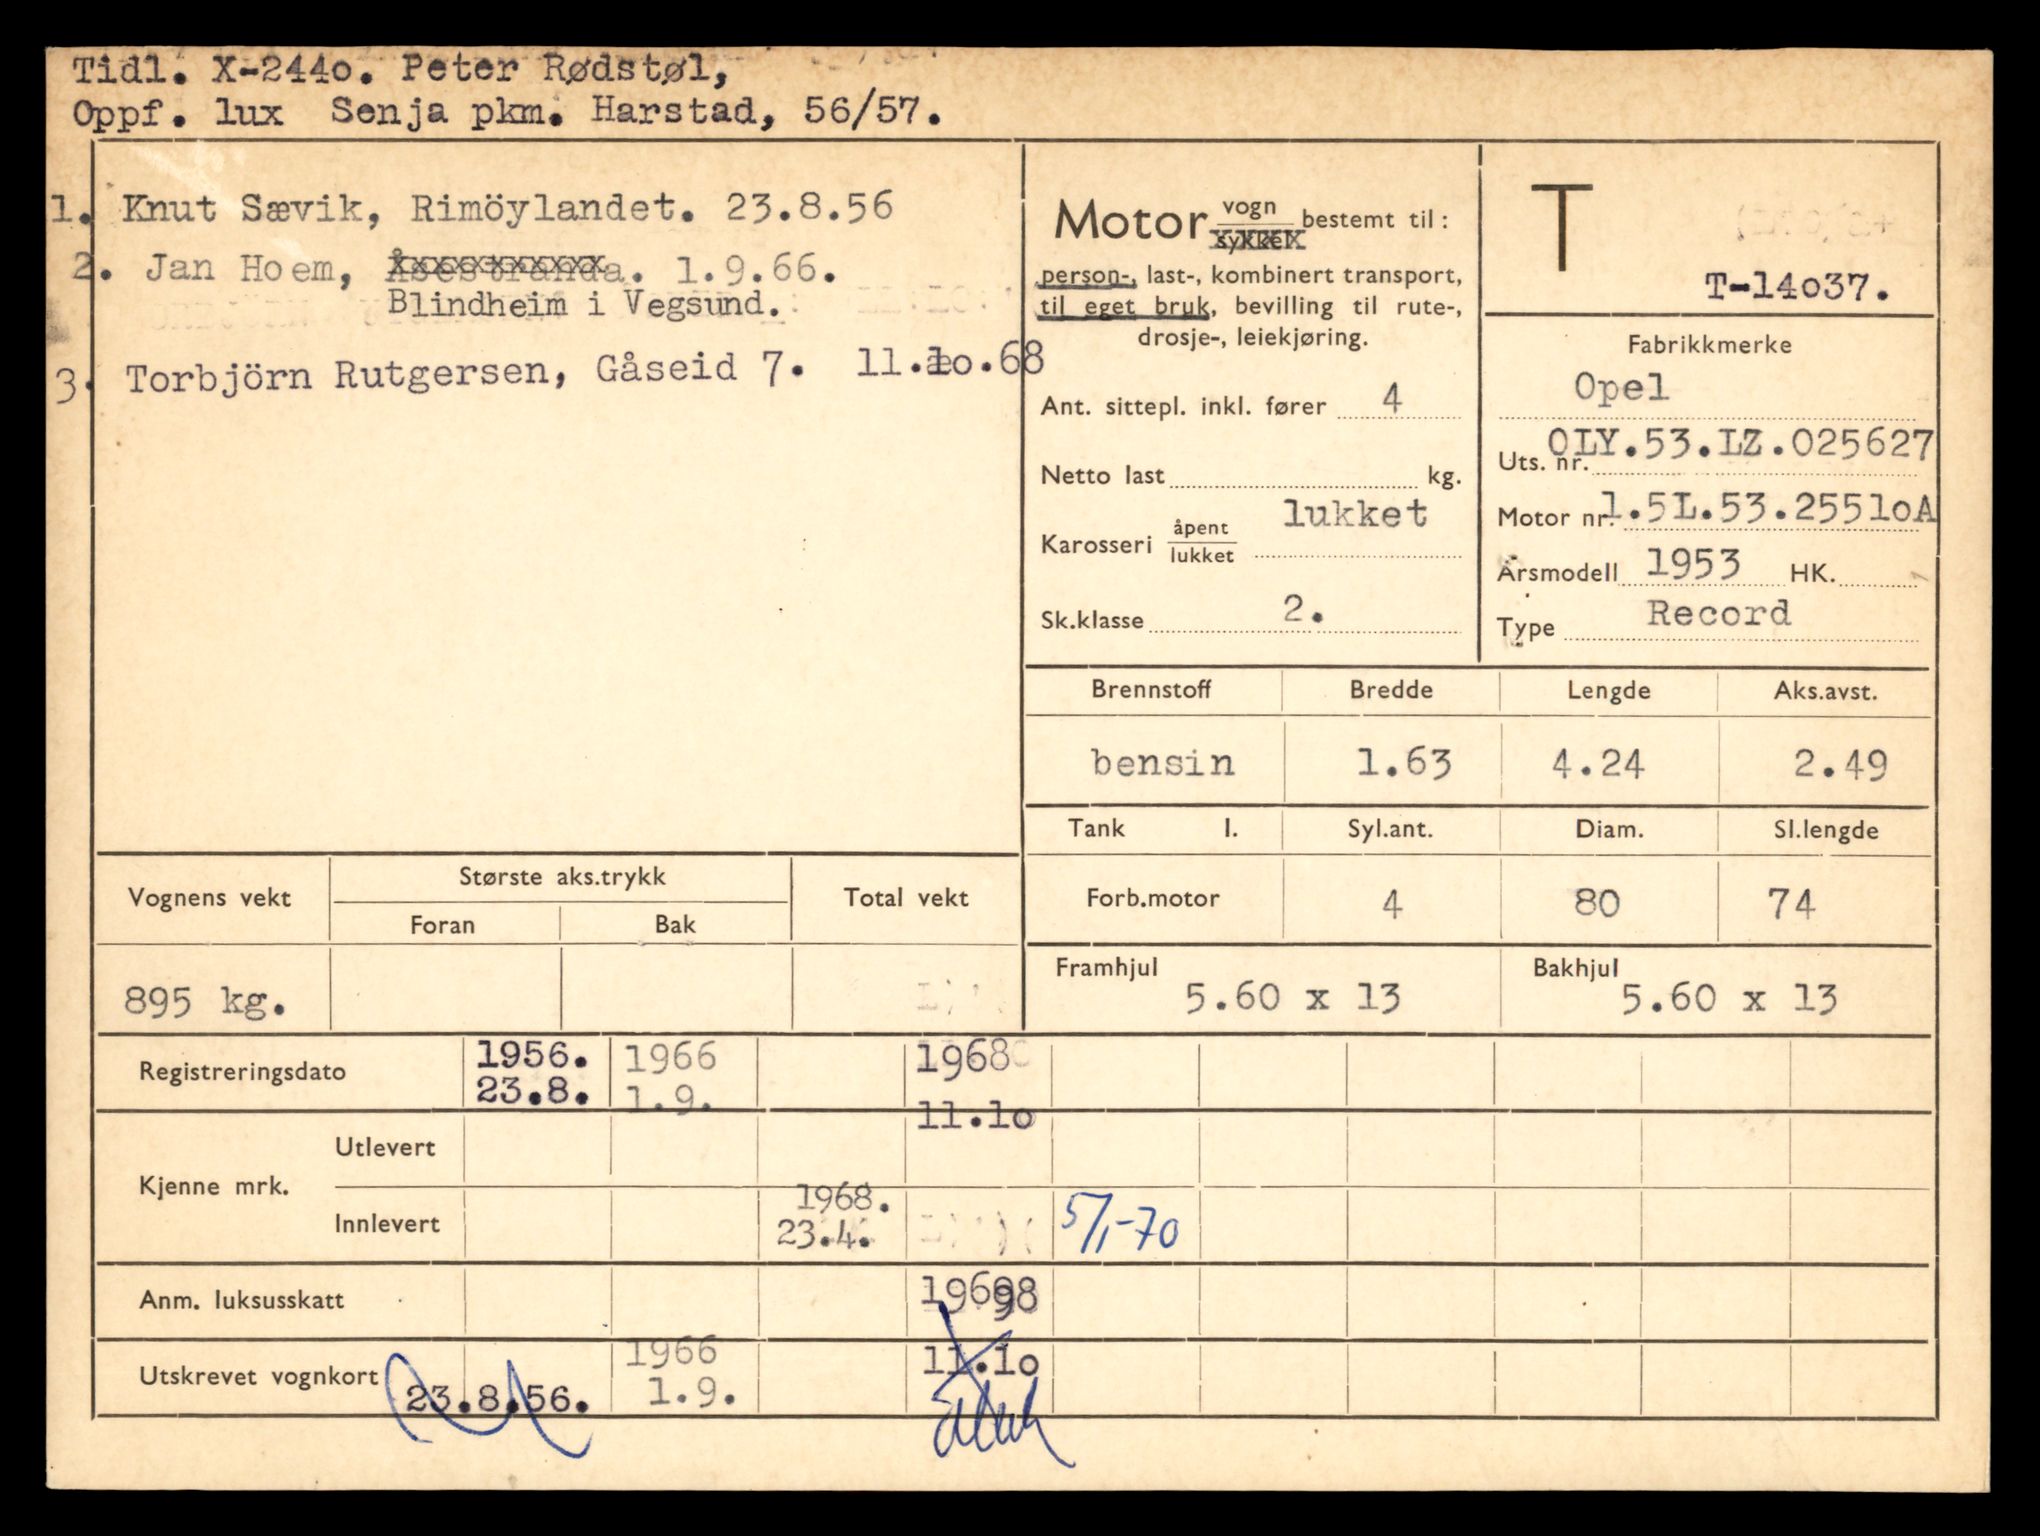 Tidl. X-244o. Peter Rødstøl,
Oppf. lux Senja pkm. Harstad, 56/57.
1. Knut Sævik, Rimöylandet. 23.8.56
2. Jan Hoem, Åsestranda. 1.9.66.
Blindheim i Vegsund.
3. Torbjörn Rutgersen, Gåseid 7. 11.1o.68
Motor vogn sykkel bestemt til:
person-, last-, kombinert transport,
til eget bruk, bevilling til rute-,
drosje-, leiekjøring.
Ant. sittepl. inkl. fører 4
Netto last kg.
Karosseri åpent lukket lukket
Sk.klasse 2.
T
T-14o37.
Fabrikkmerke
Opel
Uts. nr. OLY.53.LZ.025627
Motor nr. 1.5L.53.2551oA
Årsmodell 1953 HK.
Type Record
Brennstoff Bredde Lengde Aks.avst.
bensin 1.63 4.24 2.49
Tank l. Syl.ant. Diam. Sl.lengde
Forb.motor 4 80 74
Framhjul 5.60 x 13 Bakhjul 5.60 x 13
Vognens vekt Største aks.trykk Total vekt
Foran Bak
895 kg.
Registreringsdato 1956. 1966 1968
23.8. 1.9. 11.1o
Kjenne mrk. Utlevert
Innlevert 1968. 23.4. 5/1-70
Anm. luksusskatt
Utskrevet vognkort 23.8.56. 1966 1.9. 11.1o